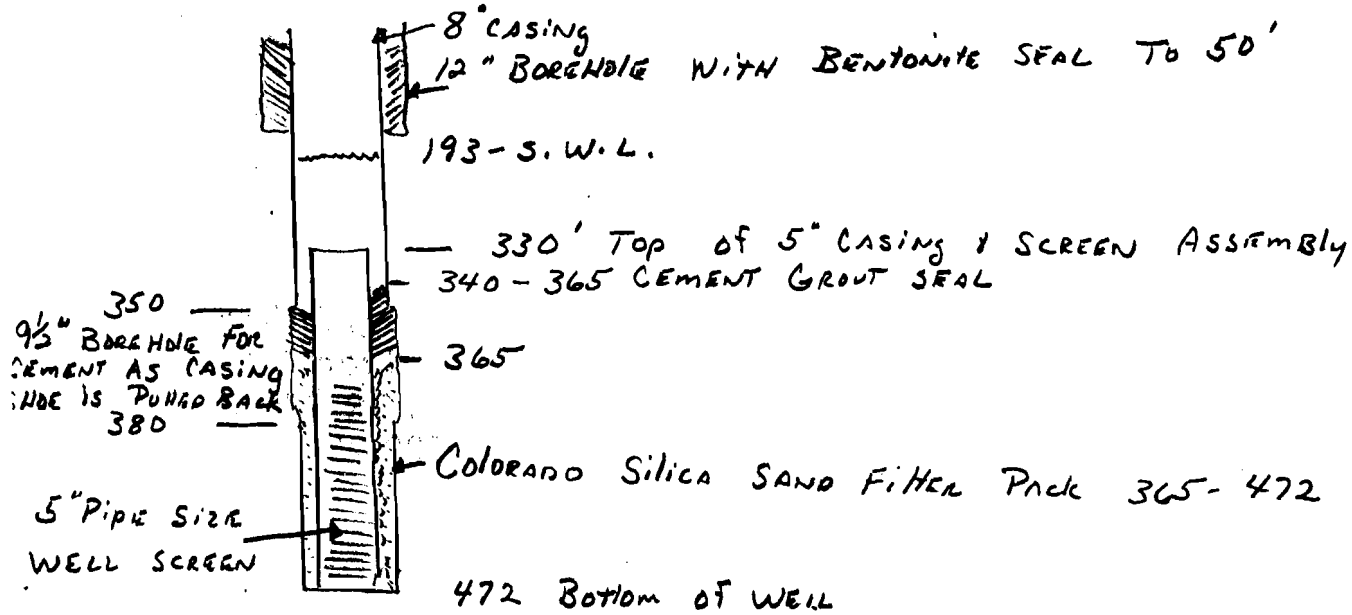 8" CASING
12" BOREHOLE WITH BENTONITE SEAL TO 50'
193 - S.W.L.
330' TOP OF 5" CASING & SCREEN ASSEMBLY
340 - 365 CEMENT GROUT SEAL
350
9½" BOREHOLE FOR
CEMENT AS CASING
SHOE IS PULLED BACK
380
365
COLORADO SILICA SAND FILTER PACK 365 - 472
5" PIPE SIZE
WELL SCREEN
472 BOTTOM OF WELL